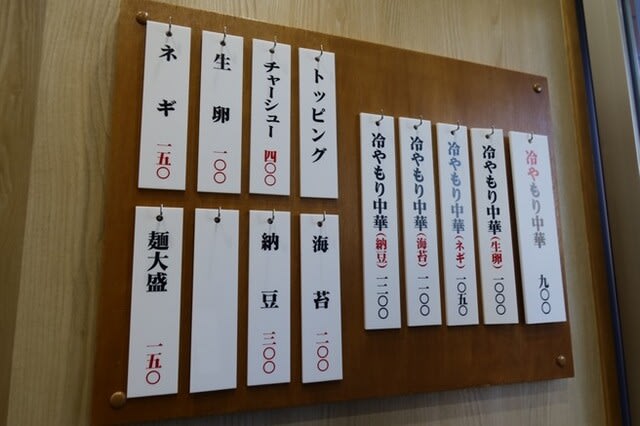 冷やもり中華 九〇〇
冷やもり中華(生卵) 一〇〇〇
冷やもり中華(ネギ) 一〇五〇
冷やもり中華(海苔) 一一〇〇
冷やもり中華(納豆) 一二〇〇
トッピング
チャーシュー 四〇〇
生卵 一〇〇
ネギ 一五〇
海苔 二〇〇
納豆 三〇〇
麺大盛 一五〇